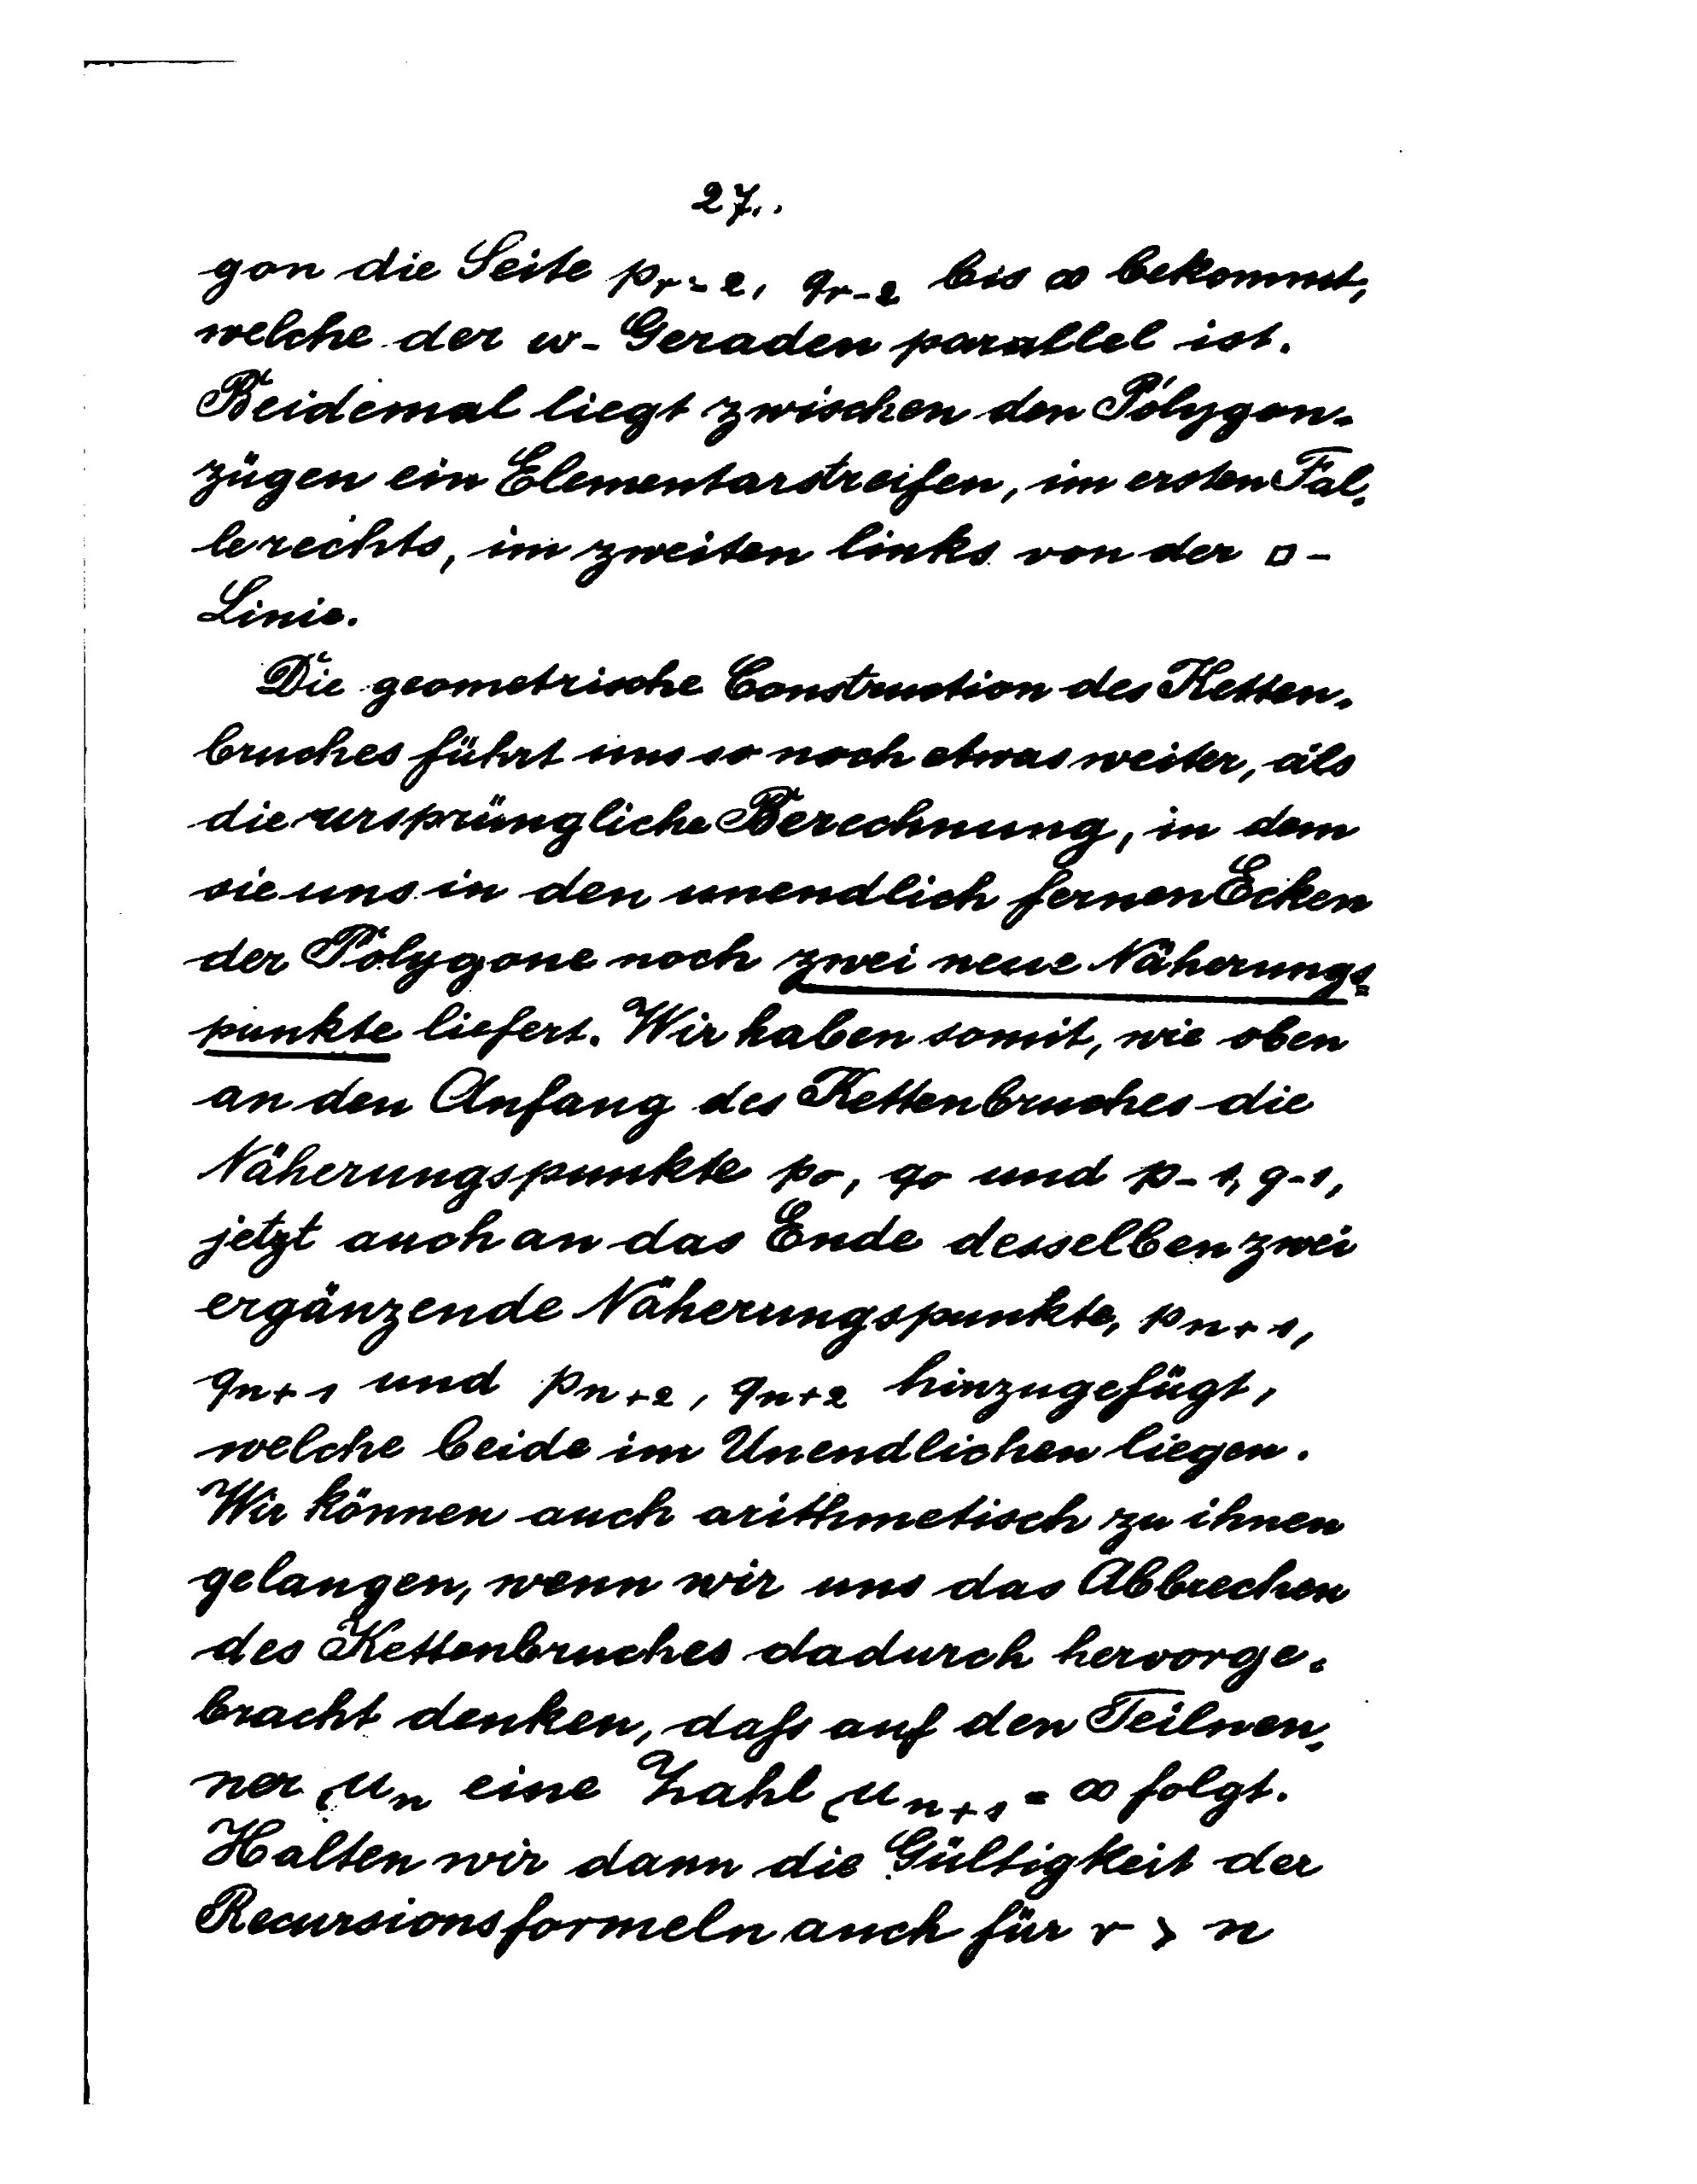 27.
gon die Seite p_{r-2}, q_{r-2} bis ∞ bekommt,
welche der w-Geraden parallel ist.
Beidemal liegt zwischen den Polygon-
zügen ein Elementarstreifen, im ersten Fal-
le rechts, im zweiten links von der □-
Linie.
Die geometrische Construction des Ketten-
bruches führt uns so noch etwas weiter, als
die ursprüngliche Berechnung, in dem
sie uns in den unendlich fernen Ecken
der Polygone noch zwei neue Näherungs-
punkte liefert. Wir haben somit, wie oben
an den Anfang des Kettenbruches die
Näherungspunkte p_0, q_0 und p_{-1}, q_{-1},
jetzt auch an das Ende desselben zwei
ergänzende Näherungspunkte, p_{n+1},
q_{n+1} und p_{n+2}, q_{n+2} hinzugefügt,
welche beide im Unendlichen liegen.
Wir können auch arithmetisch zu ihnen
gelangen, wenn wir uns das Abbrechen
des Kettenbruches dadurch hervorge-
bracht denken, daß auf den Teilnen-
ner μ_n eine Zahl μ_{n+1} = ∞ folgt.
Halten wir dann die Gültigkeit der
Recursionsformeln auch für r > n